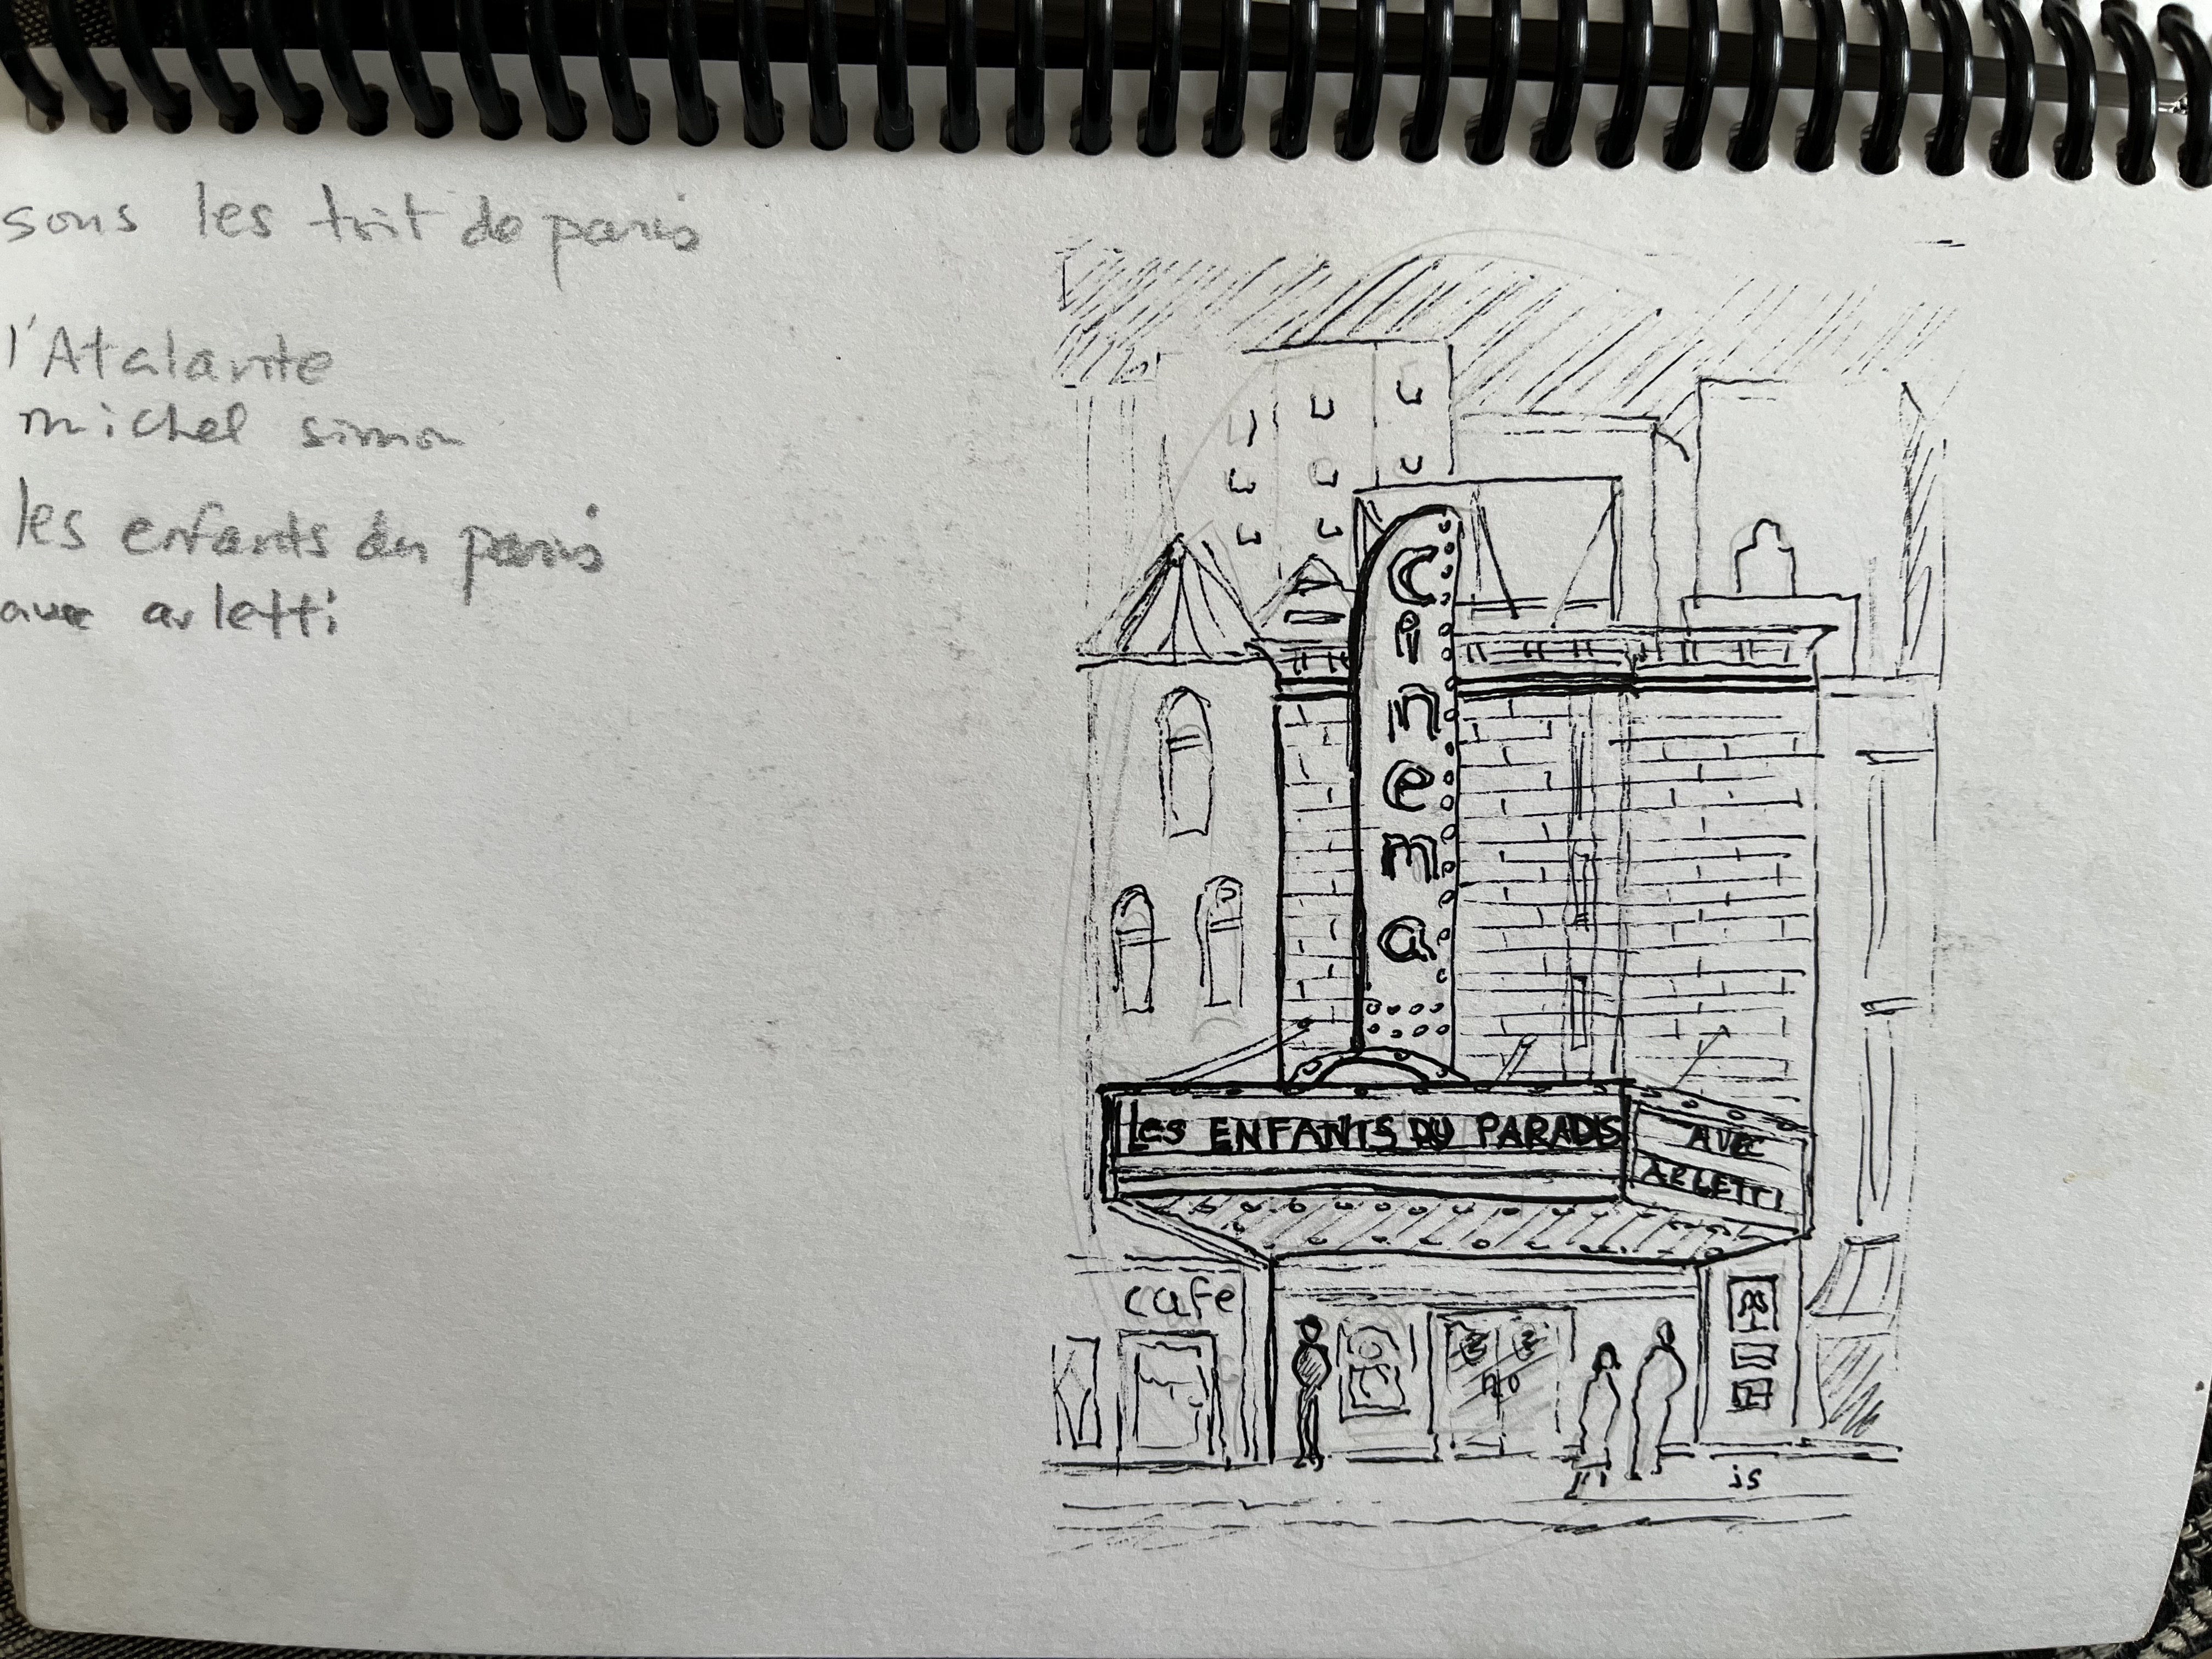 sous les toit de paris
l'Atalante
michel simon
les enfants du paris
avec arletti
cinema
Les ENFANTS DU PARADIS
AVEC
ARLETTI
cafe
js